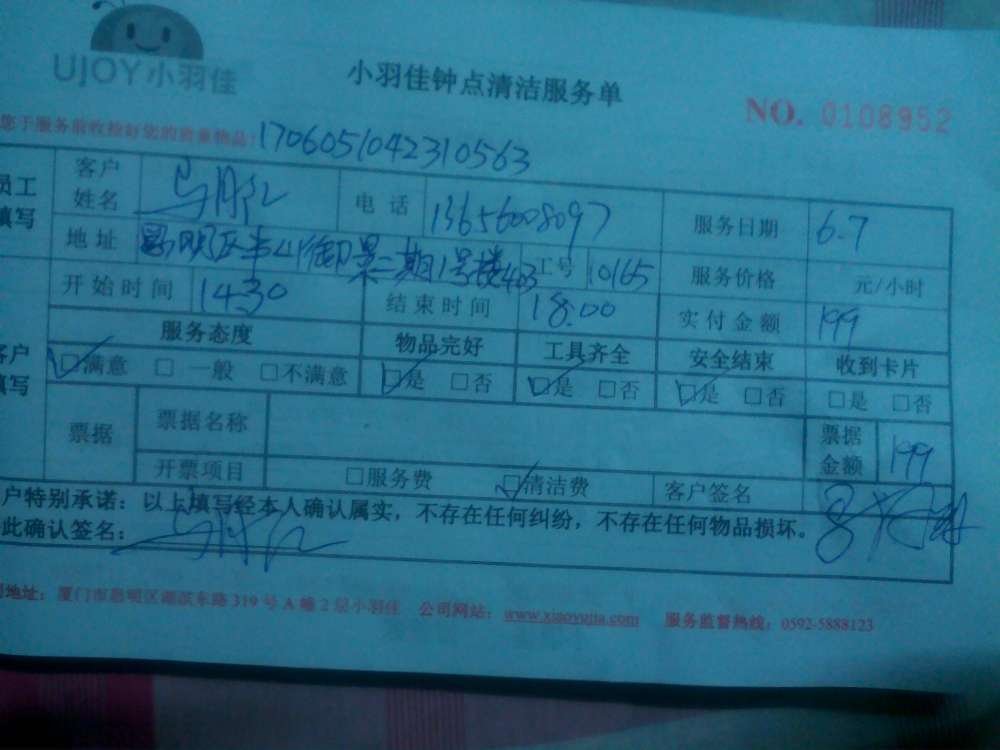 UJOY小羽佳
小羽佳钟点清洁服务单
NO. 0108952
您于服务前收捡好您的贵重物品! 1706051042310563
员工填写
客户姓名
电话 13656008097
服务日期 6.7
地址 思明区 御景二期1号楼403
工号 10165
服务价格 元/小时
开始时间 14:30
结束时间 18:00
实付金额 199
客户填写
服务态度 物品完好 工具齐全 安全结束 收到卡片
☑满意 □一般 □不满意 ☑是 □否 ☑是 □否 ☑是 □否 □是 □否
票据 票据名称
票据金额 199
开票项目 □服务费 ☑清洁费 客户签名
户特别承诺：以上填写经本人确认属实，不存在任何纠纷，不存在任何物品损坏。
此确认签名：
地址：厦门市思明区湖滨东路319号A幢2层小羽佳 公司网站：www.xiaoyujia.com 服务监督热线：0592-5888123